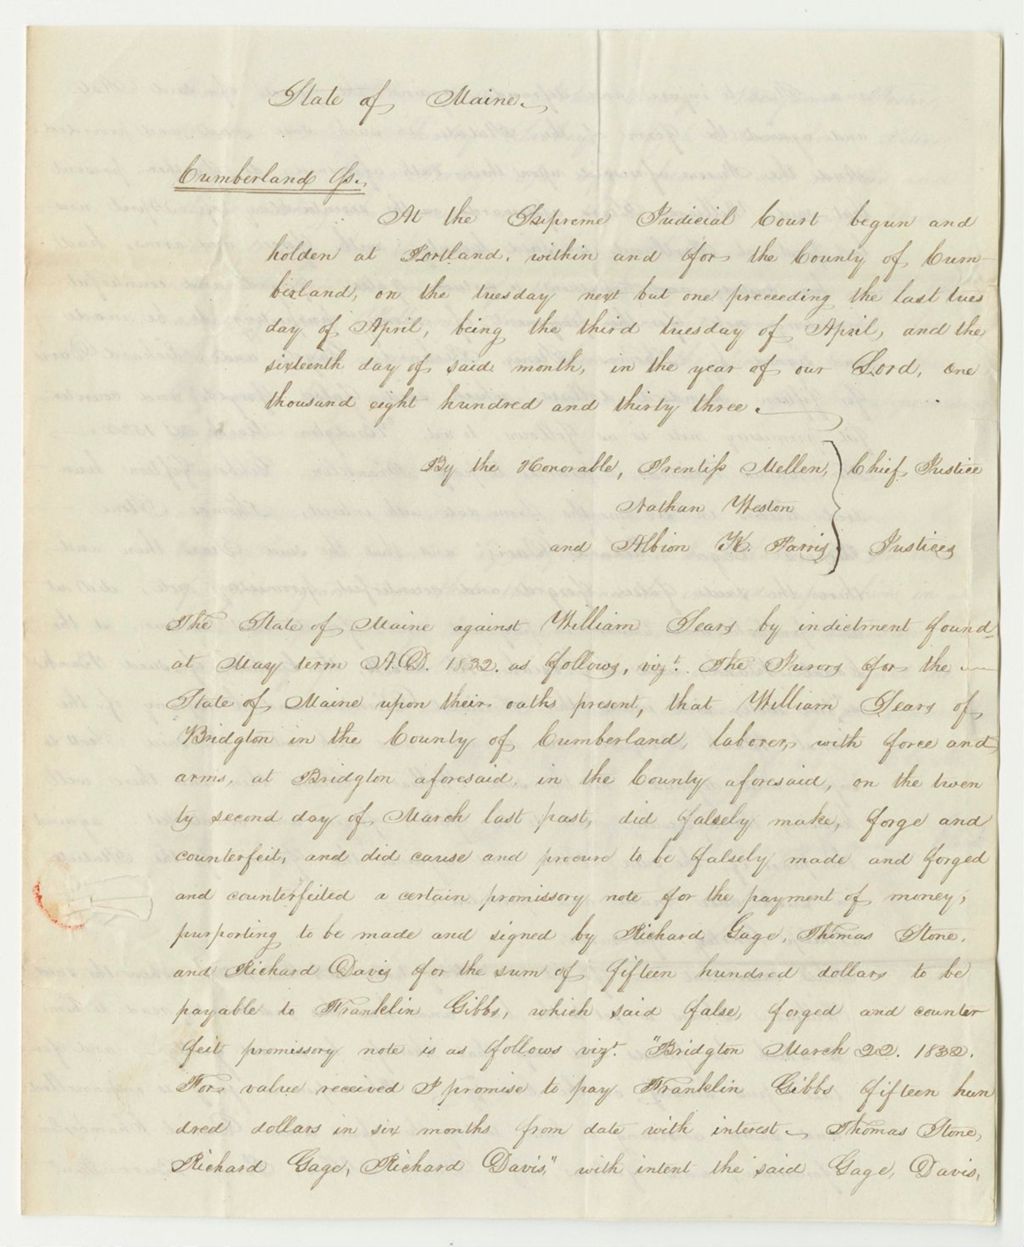 State of Maine.
Cumberland Ss.,
At the Supreme Judicial Court begun and
holden at Portland, within and for the County of Cum-
berland, on the tuesday next but one preceeding the last tues
day of April, being the third tuesday of April, and the
sixteenth day of said month, in the year of our Lord, one
thousand eight hundred and thirty three.
By the Honorable, Prentiss Mellen, Chief Justice
Nathan Weston
and Albion K. Parris Justices
The State of Maine against William Sears by indictment found
at May term A.D. 1832. as follows, vizt. The Jurors for the
State of Maine upon their oaths present, that William Sears of
Bridgton in the County of Cumberland, laborer, with force and
arms, at Bridgton aforesaid, in the County aforesaid, on the twen
ty second day of March last past, did falsely make, forge and
counterfeit, and did cause and procure to be falsely made and forged
and counterfeited a certain promissory note for the payment of money,
purporting to be made and signed by Richard Gage, Thomas Stone,
and Richard Davis for the sum of fifteen hundred dollars to be
payable to Franklin Gibbs, which said false, forged and counter
feit promissory note is as follows vizt. "Bridgton March 22. 1832.
For value received I promise to pay Franklin Gibbs fifteen hun
dred dollars in six months from date with interest. Thomas Stone,
Richard Gage, Richard Davis," with intent the said Gage, Davis,